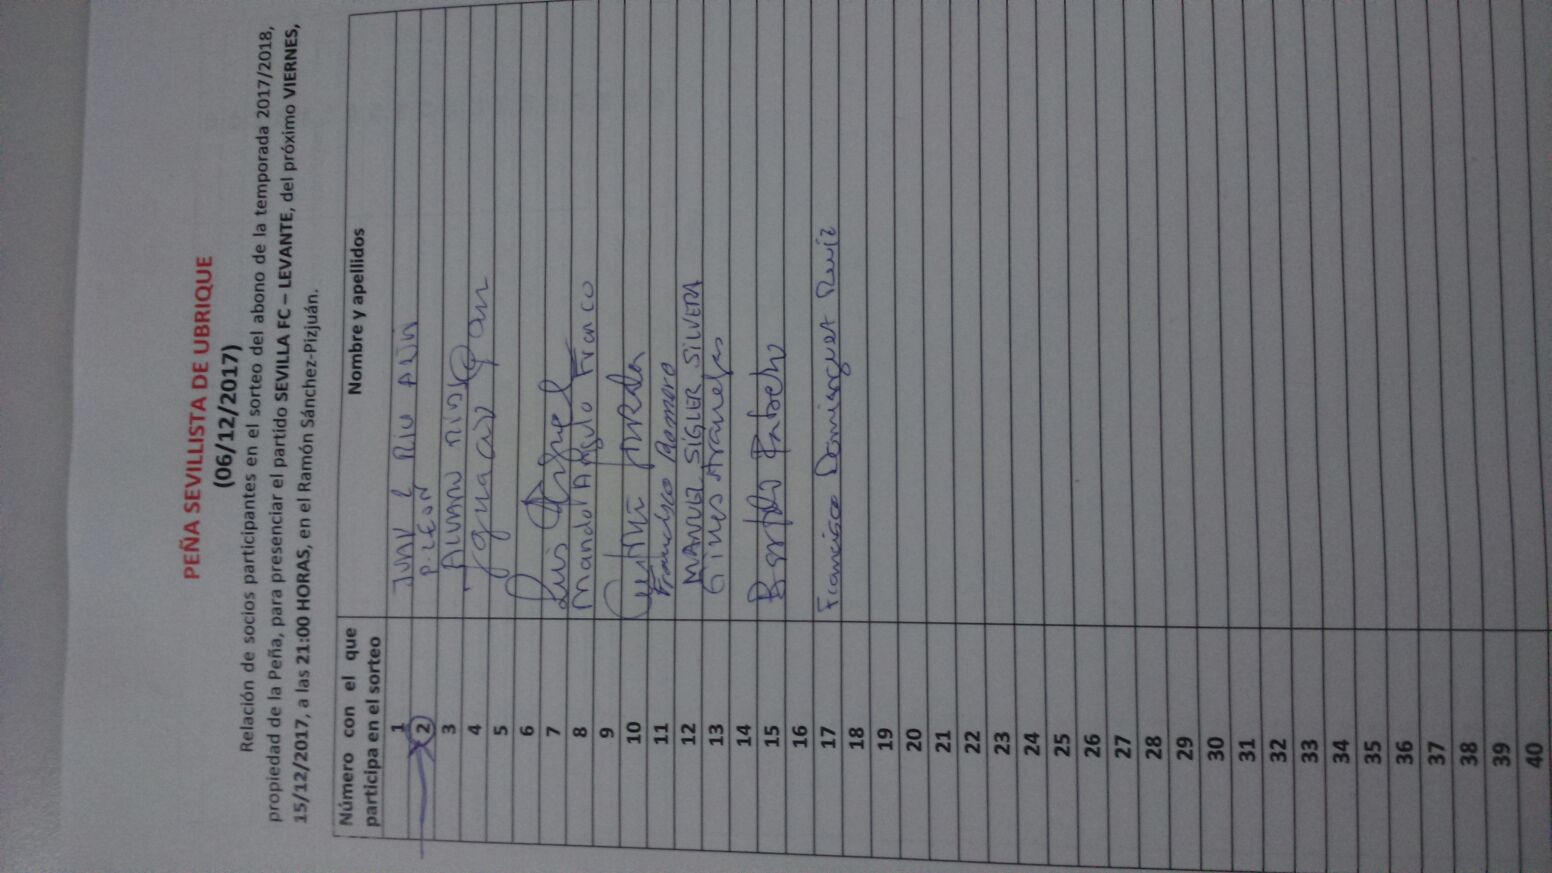 PEÑA SEVILLISTA DE UBRIQUE
(06/12/2017)
Relación de socios participantes en el sorteo del abono de la temporada 2017/2018,
propiedad de la Peña, para presenciar el partido SEVILLA FC – LEVANTE, del próximo VIERNES,
15/12/2017, a las 21:00 HORAS, en el Ramón Sánchez-Pizjuán.
Número con el que participa en el sorteo Nombre y apellidos
1
2
3
4
5
6
7 Luis Angel
8 Mando Angulo Franco
9
10
11 Francisco Romero
12 MANUEL SIGLER SILVERA
13 Gines
14
15
16
17 Francisco Dominguez Ruiz
18
19
20
21
22
23
24
25
26
27
28
29
30
31
32
33
34
35
36
37
38
39
40